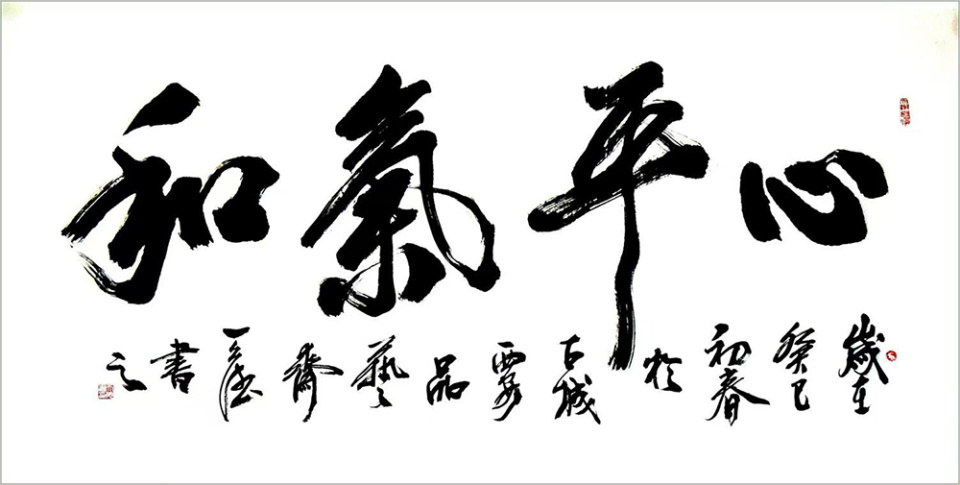 心平氣和
歲在癸巳初春於古城西安品藝齋一泓書之